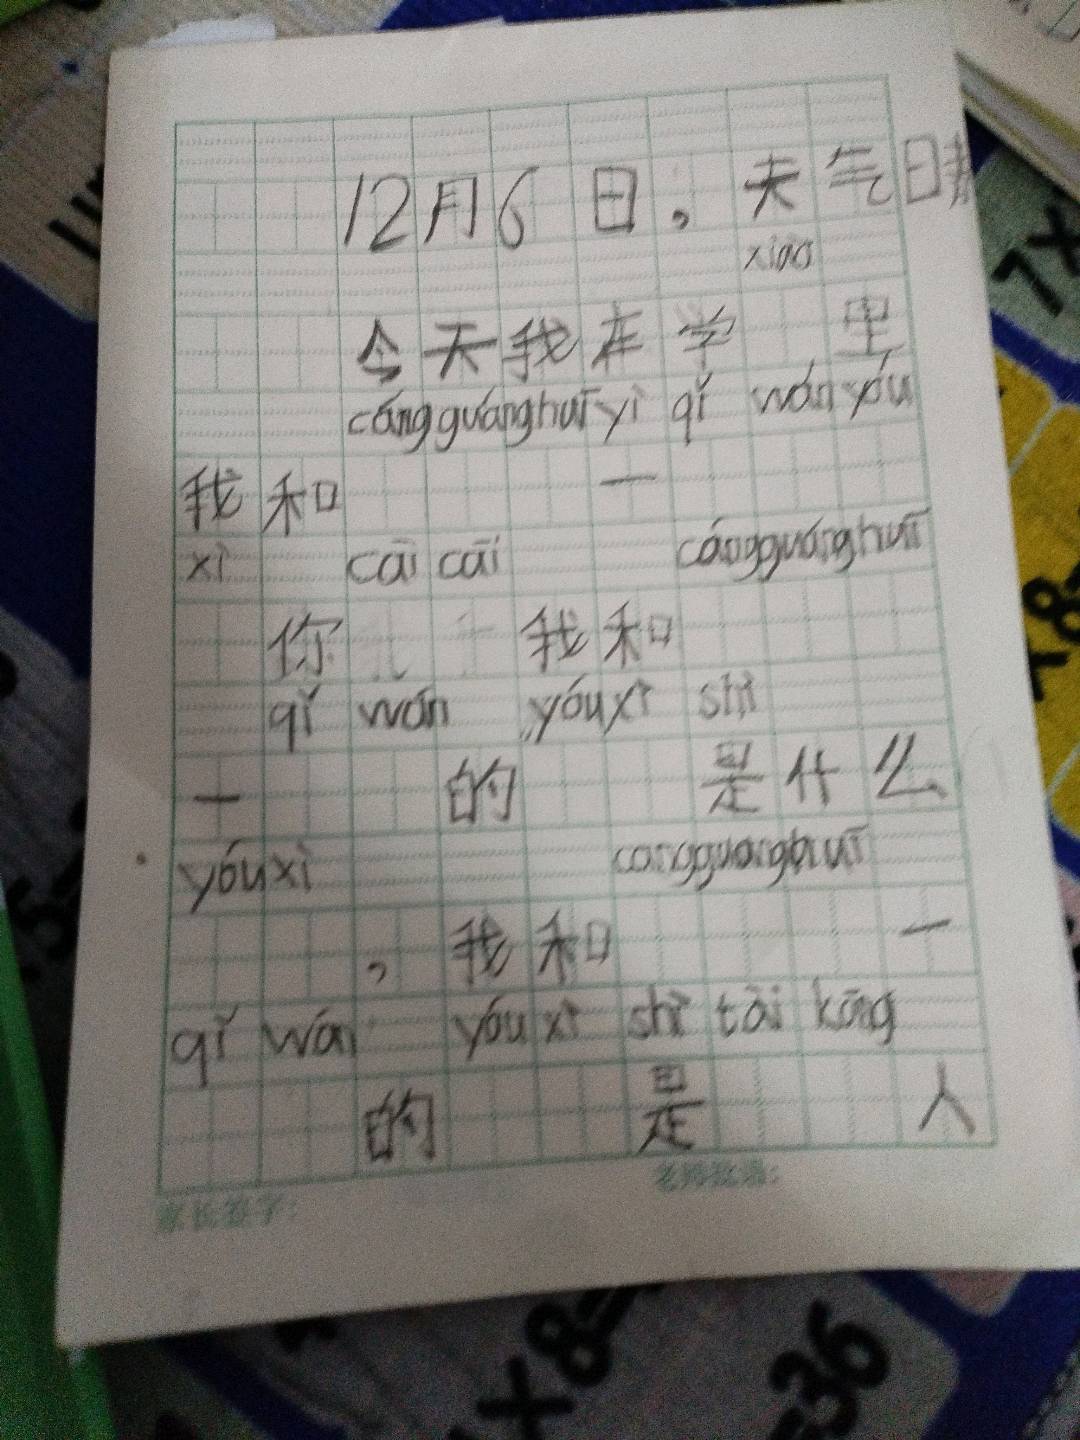 12月6日。天气日青
xiao
今天我在学 里
cángguánghuī yì qǐ wán yóu
我和 一
xì cāi cāi cángguánghuī
你 我和
qǐ wán yóuxì shì
一 的 是什么
yóuxì cangguanghuī
，我和 一
qǐ wán yóu xì shì tài kōng
的 是 人
家长签字:
老师批语:
7×
×8=
×8=
=36